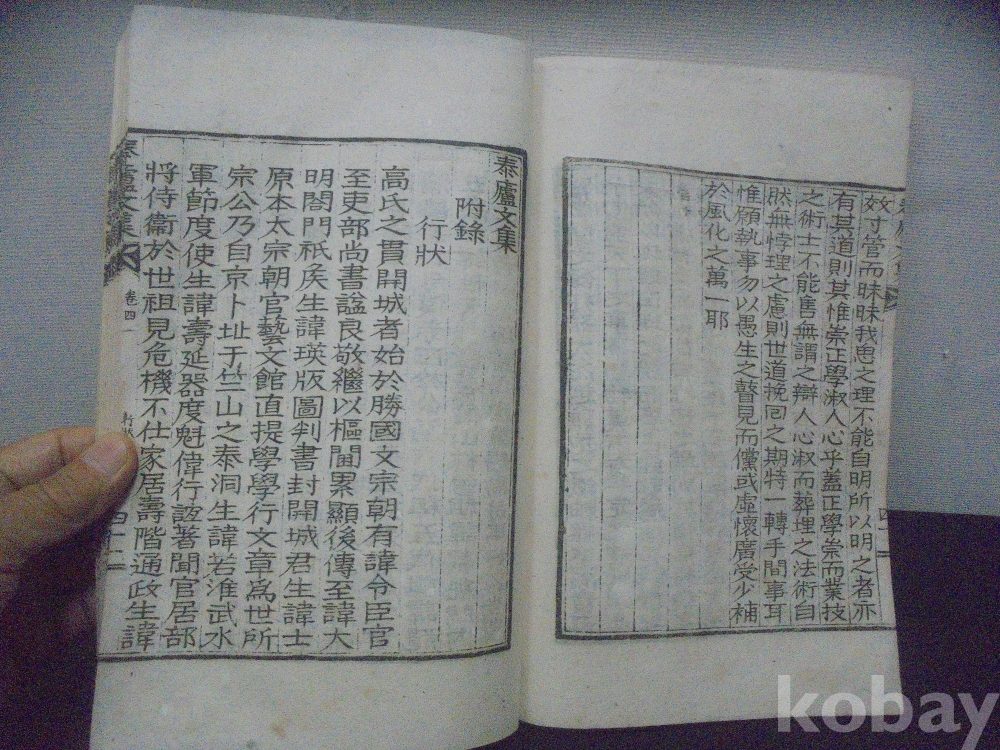 效寸管而昧昧我思之理不能自明所以明之者亦
有其道則其惟崇正學淑人心乎蓋正學崇而業技
之術士不能售無謂之辯人心淑而葬埋之法術自
然無悖理之慮則世道挽回之期特一轉手間事耳
惟願執事勿以愚生之瞽見而儻或虛懷廣受少補
於風化之萬一耶
泰廬文集
附錄
行狀
高氏之貫開城者始於勝國文宗朝有諱令臣官
至吏部尚書諡良敬繼以樞閫累顯後傳至諱大
明閤門祇矦生諱瑛版圖判書封開城君生諱士
原本太宗朝官藝文館直提學學行文章爲世所
宗公乃自京卜址于竺山之泰洞生諱若淮武水
軍節度使生諱壽延器度魁偉行誼著聞官居部
將侍衛於世祖見危機不仕家居壽階通政生諱
泰廬文集
卷四
四十二
kobay